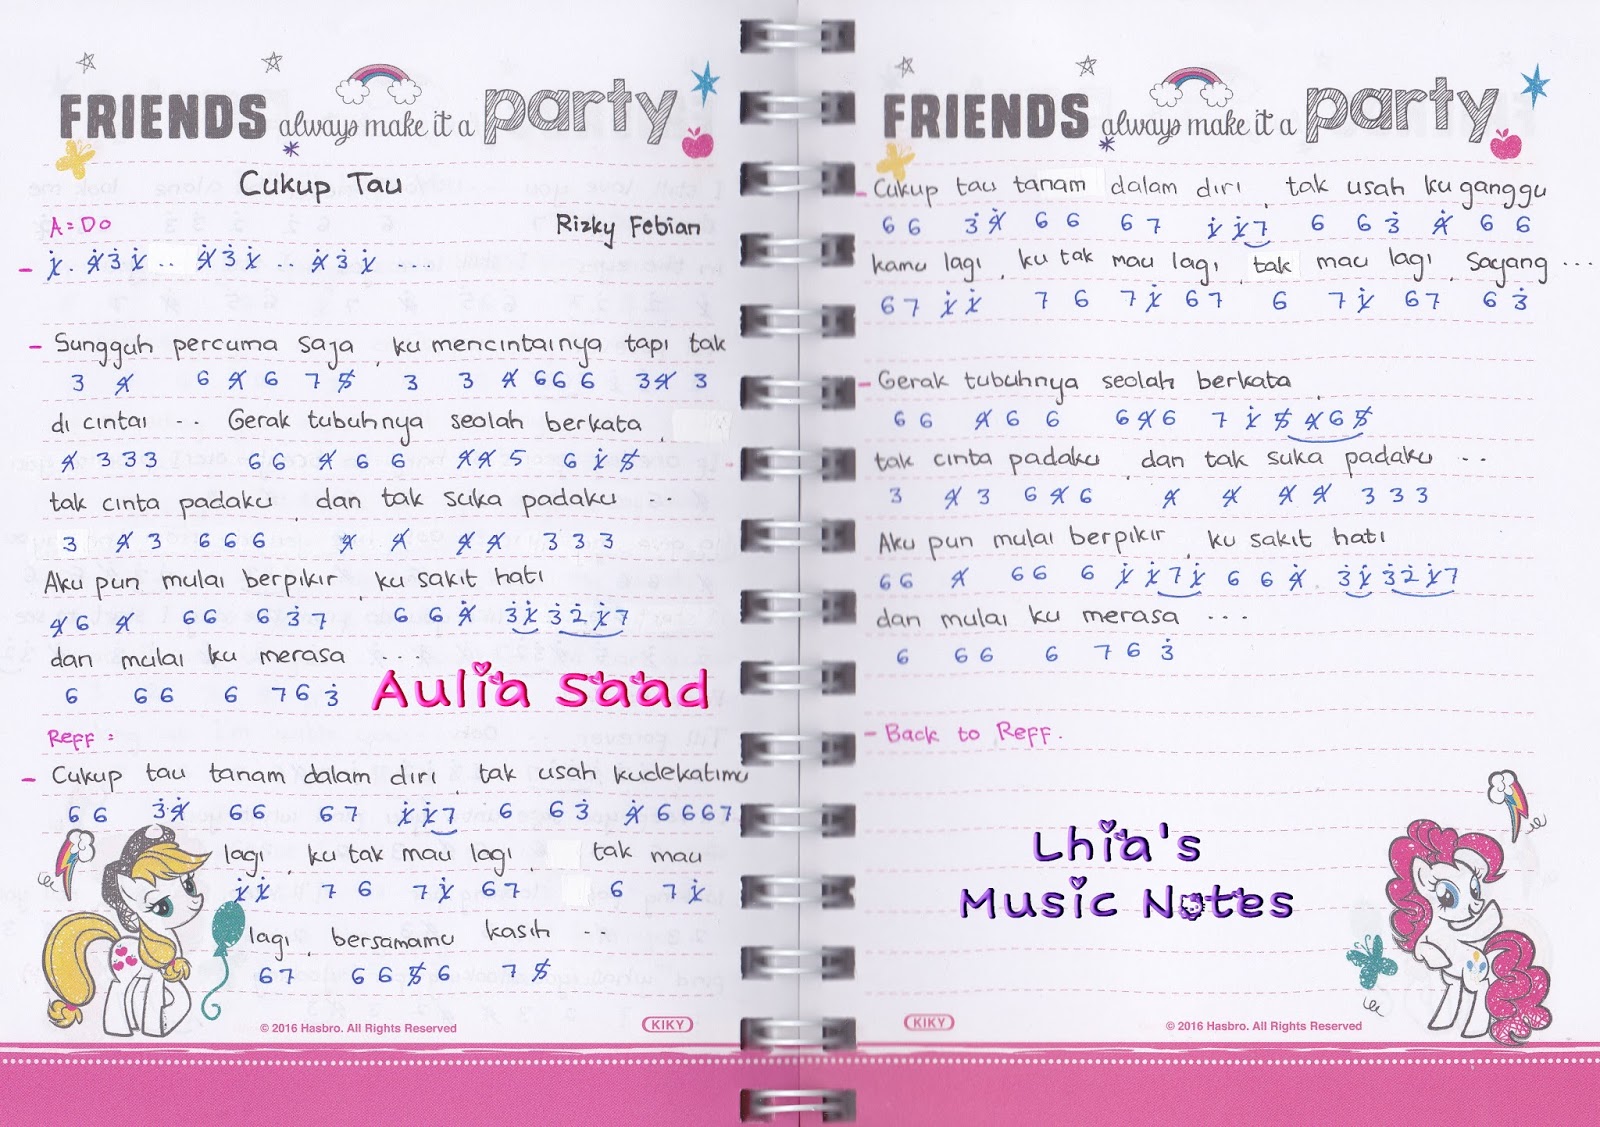 FRIENDS always make it a party
Cukup Tau
A = Do Rizky Febian
- 1̸̇ . 4̸̇ 3̇ 1̸̇ .. 4̸̇ 3̇ 1̸̇ .. 4̸̇ 3̇ 1̸̇ ....
- Sungguh percuma saja , ku mencintainya tapi tak
3 4̸ 6 4̸ 6 7 5̸ 3 3 4̸ 6 6 6 3 4̸ 3
di cintai .. Gerak tubuhnya seolah berkata ,
4̸ 3 3 3 6 6 4̸ 6 6 4̸ 4̸ 5 6 1̸̇ 5̸
tak cinta padaku , dan tak suka padaku ...
3 4̸ 3 6 6 6 4̸ 4̸ 4̸ 4̸ 3 3 3
Aku pun mulai berpikir , ku sakit hati
4̸ 6 4̸ 6 6 6 3̇ 7 6 6 4̸̇ 3̇ 1̸̇ 3̇ 2̇ 1̸̇ 7
dan mulai ku merasa ...
6 6 6 6 7 6 3̇
Aulia Saad
Reff :
- Cukup tau tanam dalam diri , tak usah kudekatimu
6 6 3̇ 4̸̇ 6 6 6 7 1̸̇ 1̸̇ 7 6 6 3̇ 4̸̇ 6 6 6 7
lagi , ku tak mau lagi , tak mau
1̸̇ 1̸̇ 7 6 7 1̸̇ 6 7 6 7 1̸̇
lagi , bersamamu kasih ..
6 7 6 6 5̸ 6 7 5̸
© 2016 Hasbro. All Rights Reserved KIKY
FRIENDS always make it a party
- Cukup tau tanam dalam diri , tak usah ku ganggu
6 6 3̇ 4̸̇ 6 6 6 7 1̸̇ 1̸̇ 7 6 6 3̇ 4̸̇ 6 6
kamu lagi , ku tak mau lagi , tak mau lagi , Sayang ...
6 7 1̸̇ 1̸̇ 7 6 7 1̸̇ 6 7 6 7 1̸̇ 6 7 6 3̇
- Gerak tubuhnya seolah berkata ,
6 6 4̸ 6 6 6 4̸ 6 7 1̸̇ 5̸ 4̸ 6 5̸
tak cinta padaku , dan tak suka padaku ..
3 4̸ 3 6 4̸ 6 4̸ 4̸ 4̸ 4̸ 3 3 3
Aku pun mulai berpikir , ku sakit hati
6 6 4̸ 6 6 6 1̸̇ 1̸̇ 7 1̸̇ 6 6 4̸̇ . 3̇ 1̸̇ 3̇ 2̇ 1̸̇ 7
dan mulai ku merasa ...
6 6 6 6 7 6 3̇
- Back to Reff.
Lhia's
Music Notes
KIKY © 2016 Hasbro. All Rights Reserved